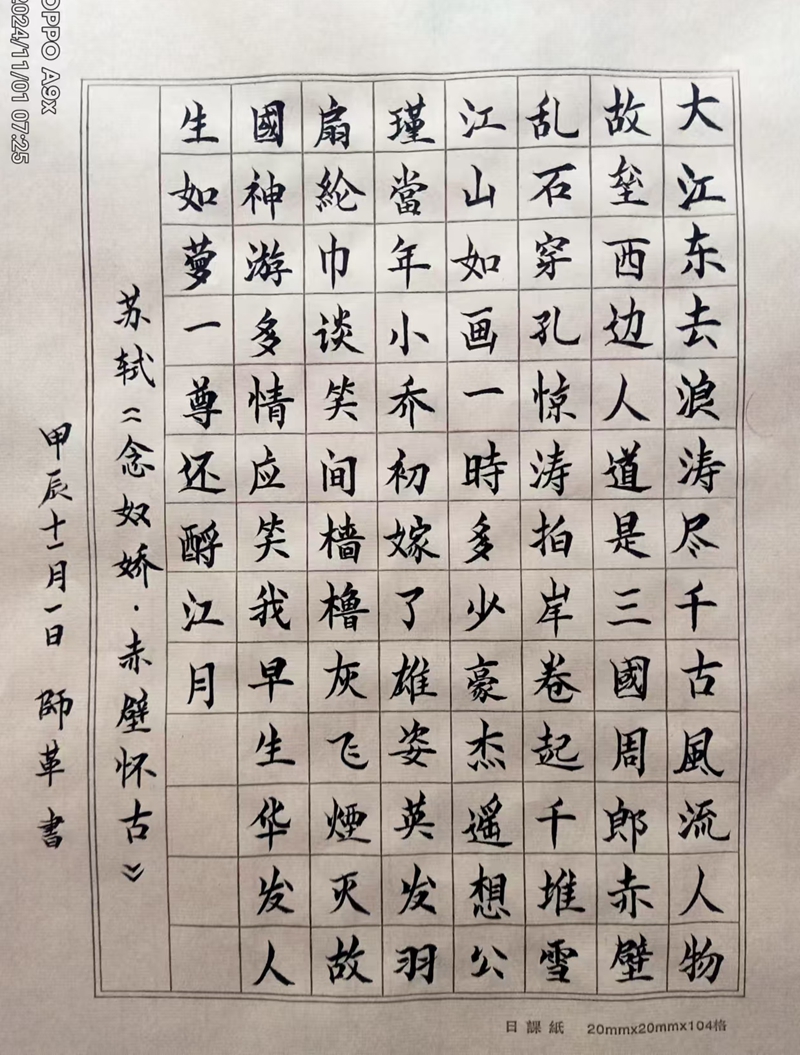 大江东去浪涛尽千古風流人物
故垒西边人道是三國周郎赤壁
乱石穿孔惊涛拍岸卷起千堆雪
江山如画一時多少豪杰遥想公
瑾當年小乔初嫁了雄姿英发羽
扇綸巾谈笑间檣橹灰飞煙灭故
國神游多情应笑我早生华发人
生如夢一尊还酹江月
苏轼《念奴娇·赤壁怀古》
甲辰十一月一日 師革書
日課紙 20mmx20mmx104格
OPPO A9x
2024/11/01 07:25